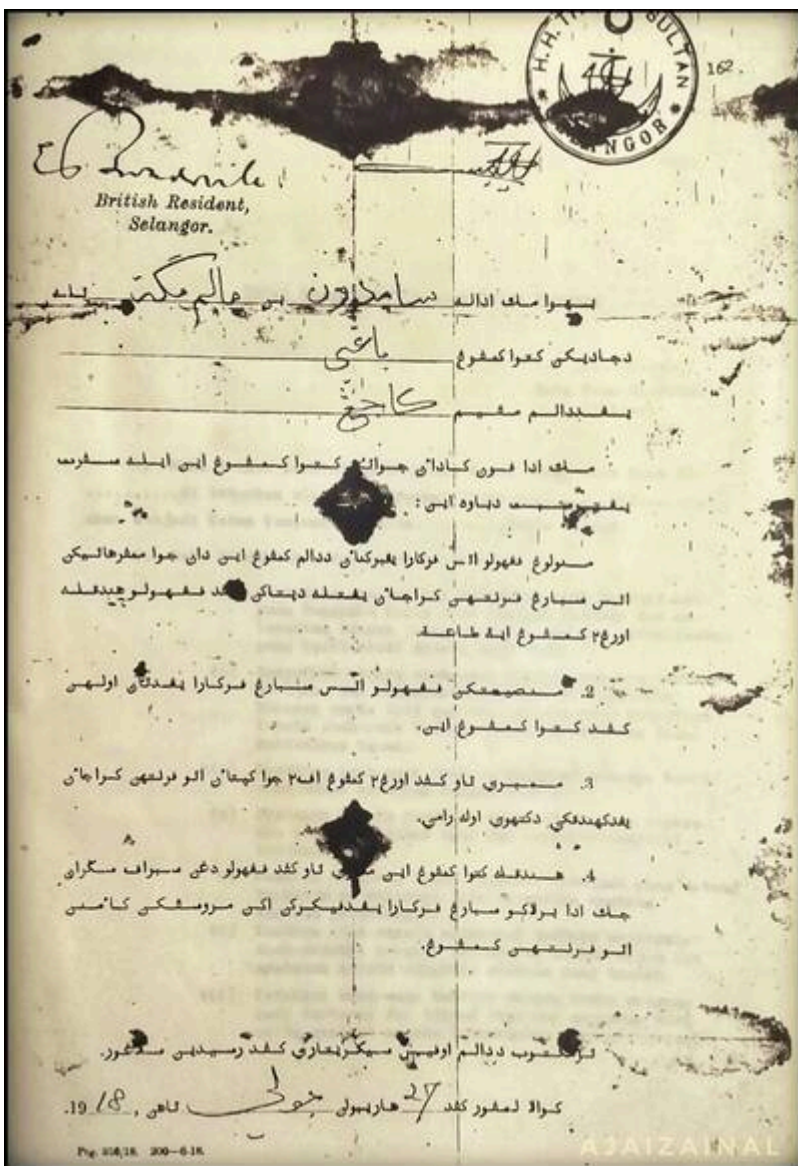 H.H. THE SULTAN
162.
British Resident,
Selangor.
بهوا مك اداله سامدون بن حاليم مكت
دجاديكن كتوا كمڤوڠ باڠي
يڠددالم مقيم كاجڠ
مك ادا ڤون كاداءن جواتن كتوا كمڤوڠ اين ايله سڤرت
دباوه اين:
منولوڠ ڤڠهولو اتس ڤركارا يڠبركناءن ددالم كمڤوڠ اين دان جوا ممرهاتيكن
اتس سبارڠ ڤرنتهن كراجاءن يڠتله دڽتاكن ڤد ڤڠهولو هندقله
اورڠ٢ كمڤوڠ ايت طاعة.
2. منصيحتكن ڤڠهولو اتس سبارڠ ڤركارا اولهن
كڤد كتوا كمڤوڠ اين.
3. ممبري تاو كڤد اورڠ٢ كمڤوڠ اڤ٢ جوا كڽتاءن اتو ڤرنتهن كراجاءن
يڠدكهندقكي دكتهوي اوله رامي.
4. هندقله كتوا كمڤوڠ اين تاو كڤد ڤڠهولو دڠن سبراڤ سݢران
جك ادا برلاكو سبارڠ ڤركارا يڠدفيكركن اكن مروسقكن كأمنن
اتو ڤرنتهن كمڤوڠ.
ترمكتوب ددالم اوفيس سيكريتاري كڤد رسيدين سلاڠور.
كوالا لمڤور كڤد 27 هاريبولن جولي تاهن ,1918.
Ptg. 256/18. 200—6-18.
AJAIZAINAL